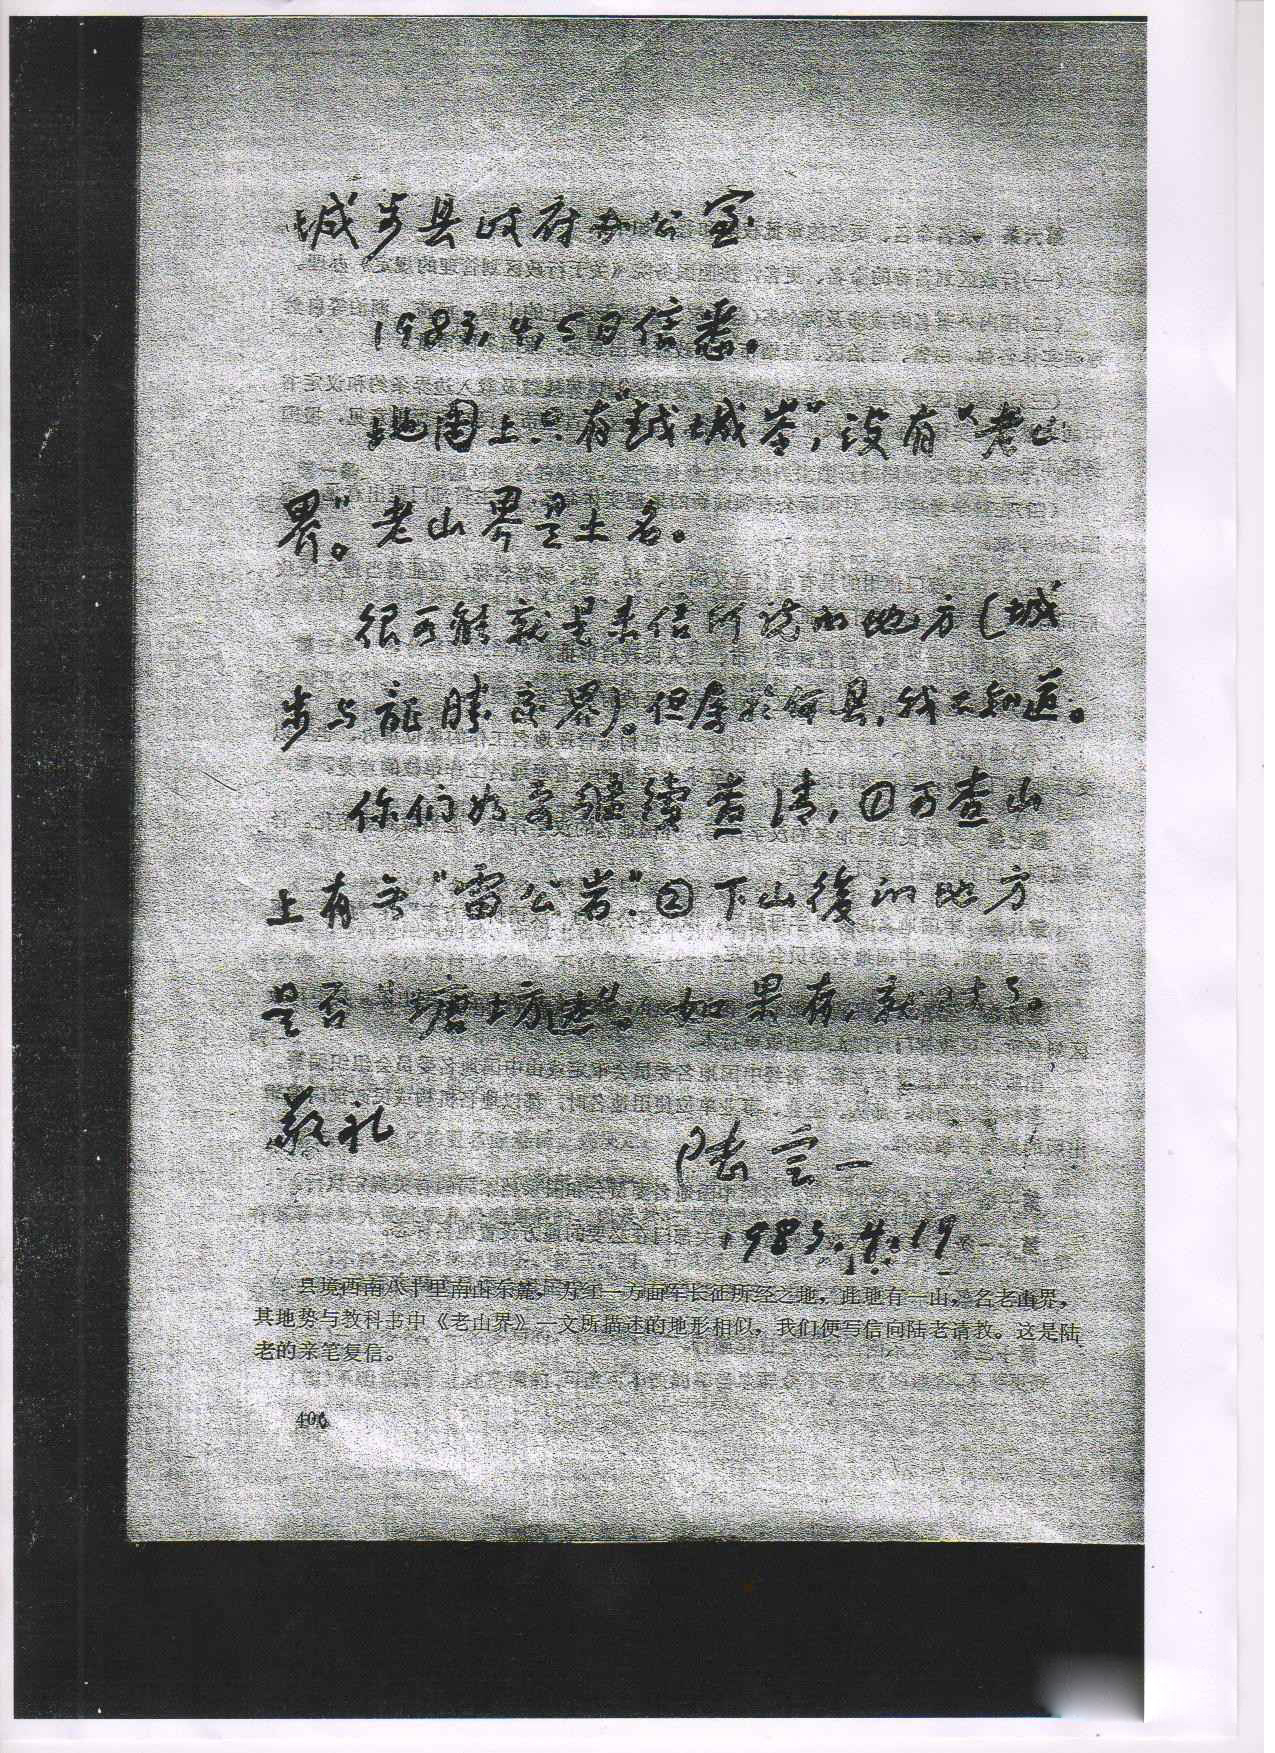 城步县政府办公室
1983,4,5日信悉。
地图上只有"越城岺",没有"老山
界"。老山界是土名。
很可能就是来信所说的地方(城
步与龍勝交界)。但属於何县,我不知道。
你们如要繼續查清,①可查山
上有无"雷公岩".②下山後的地方
是否"塘坊边"。如果有,就
敬礼
陆定一
1983.4.19
县境西南八十里南山东麓,为红一方面军长征所经之地,此地有一山,名老山界,
其地势与教科书中《老山界》一文所描述的地形相似,我们便写信向陆老请教。这是陆
老的亲笔复信。
406